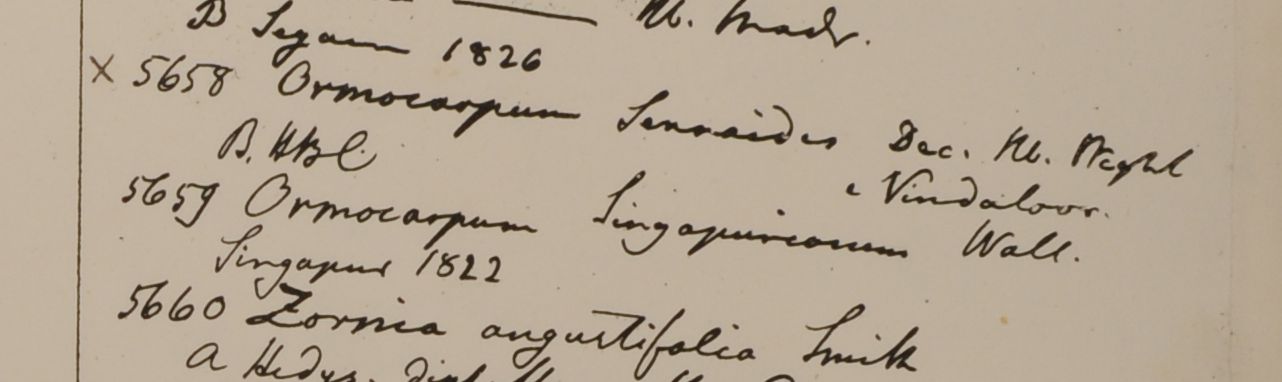 Hb. Madr.
B Segain 1826
× 5658 Ormocarpum Sennoides Dec. Hb. Wight
B. HBC e Vindaloor.
5659 Ormocarpum Singapureanum Wall.
Singapur 1822
5660 Zornia angustifolia Smith
a Hedys.